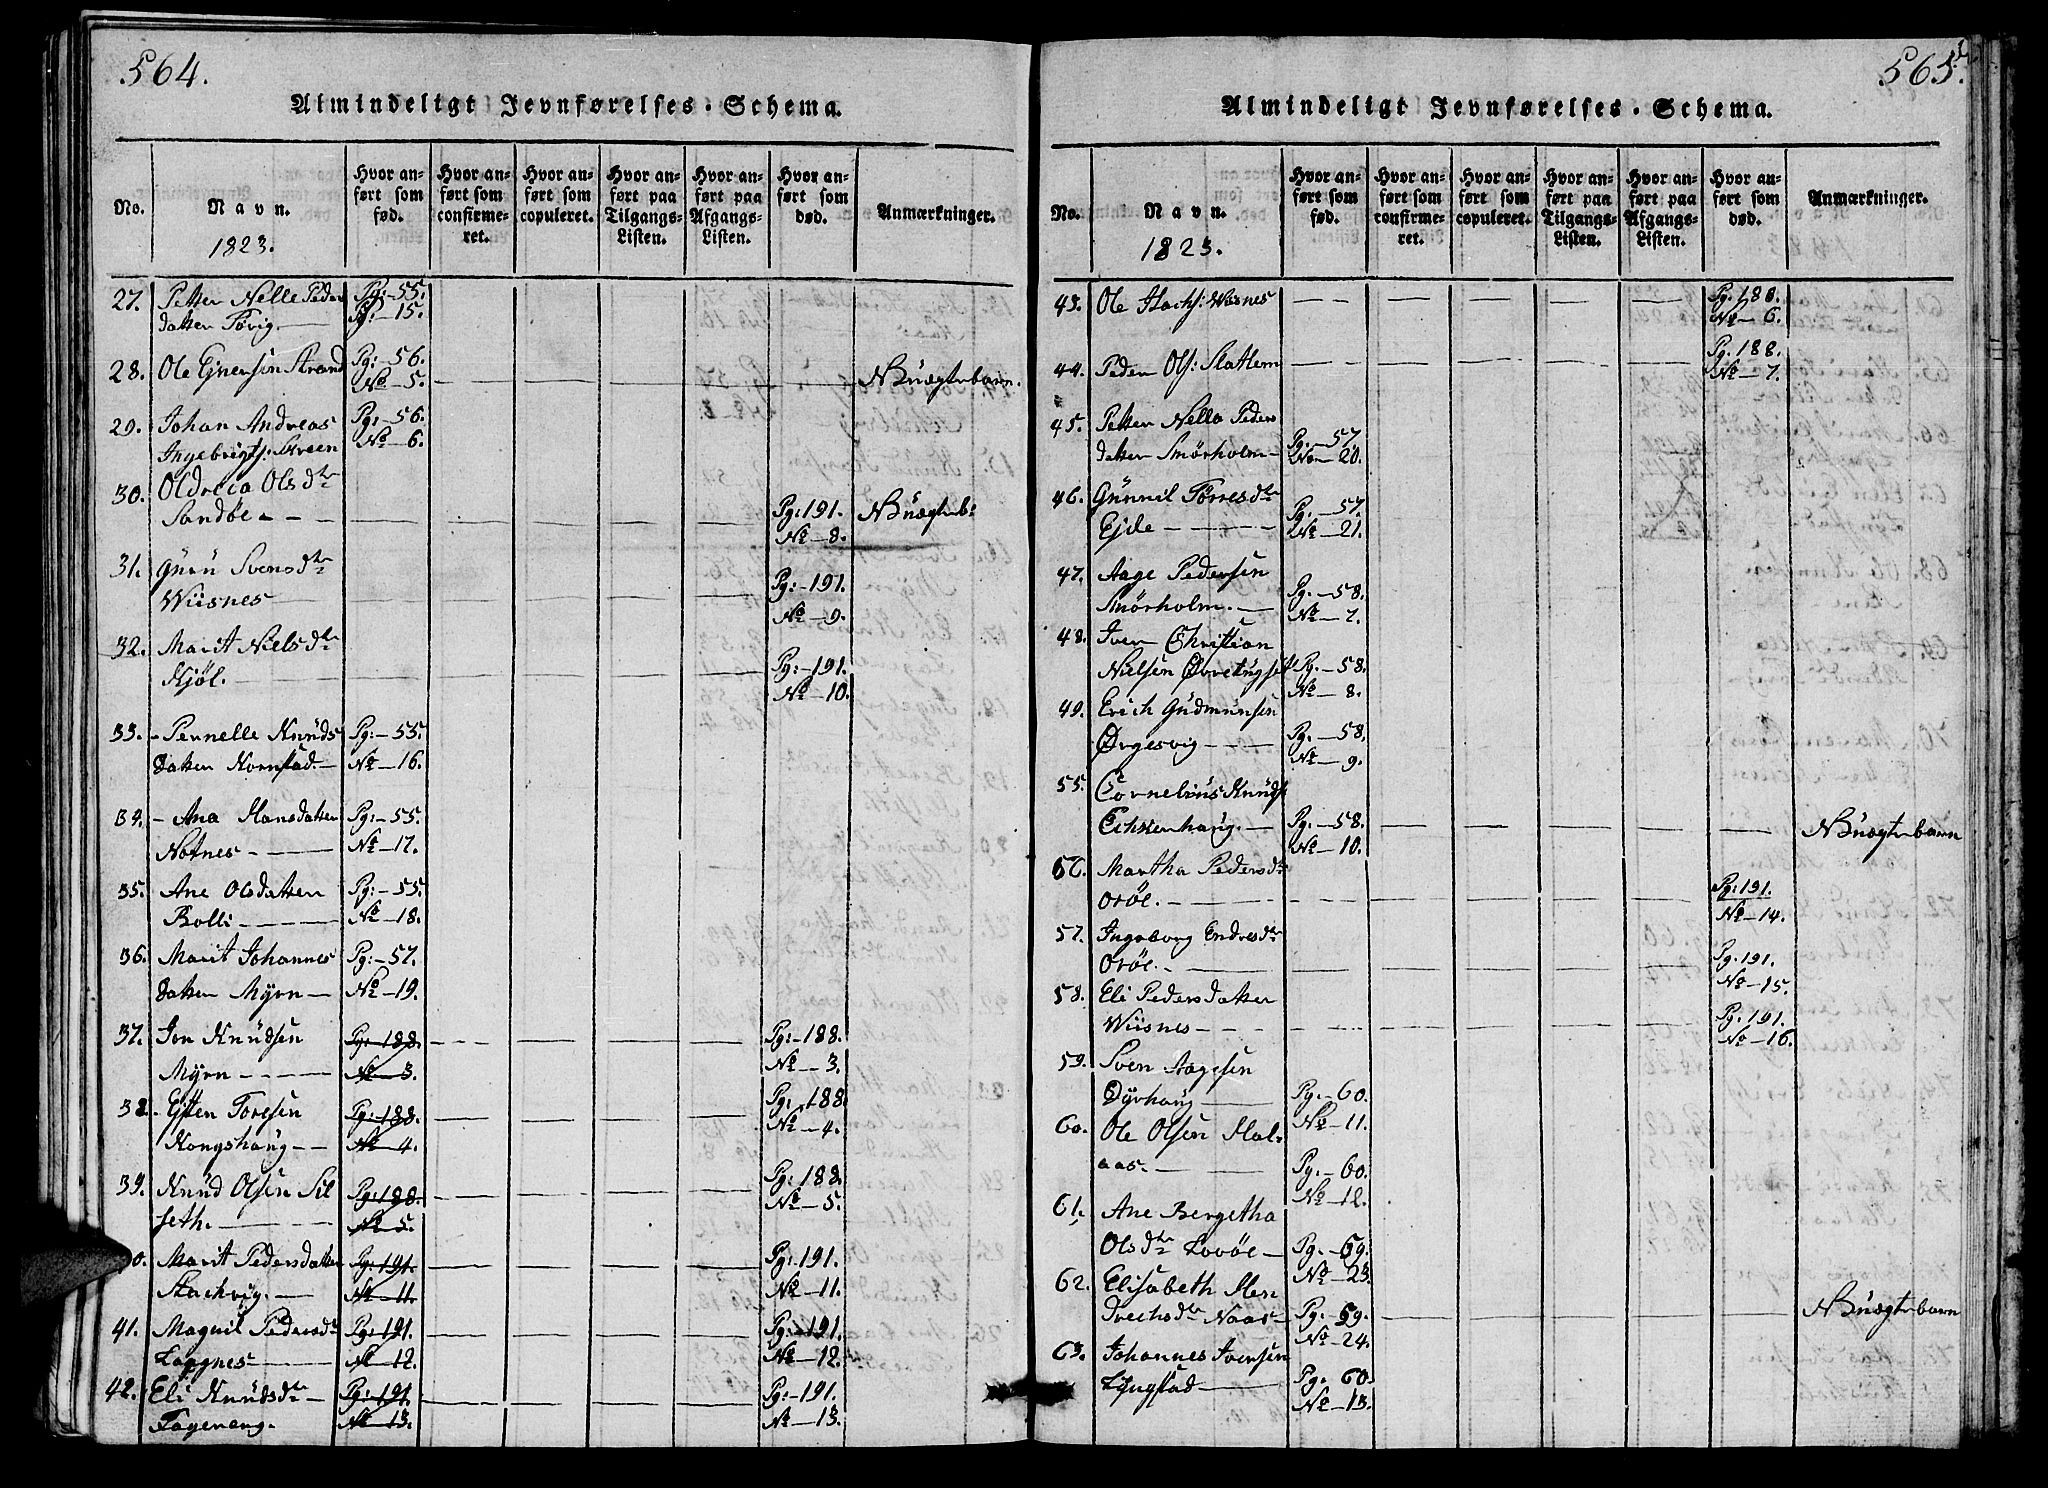 564.
Almindeligt Jevnførelses-Schema.
No. Navn. 1823. Hvor anført som fød. Hvor anført som confirmeret. Hvor anført som copuleret. Hvor anført paa Tilgangs-Listen. Hvor anført paa Afgangs-Listen. Hvor anført som død. Anmærkninger.
27. Petter Nelle Peders Pg:-55.
datter Pg:-15.
28. Ole Ejnersen Strand Pg:-56. NB uægte barn.
No-5.
29. Johan Andreas Pg:-56.
Ingebrigts: No-6.
30. Olds dtr
Sandøe Pg:191. NB uægteb:
No-8.
31. Guru Svensdtr
Wiisnes Pg:-191.
No-9.
32. Marit Nielsdtr
Kjöl. Pg:-191.
No-10.
33. Pernelle Knuds Pg:-55.
datter Kornstad No-16.
34. Ana Hansdatter Pg:-55.
Notnes No-17.
35. Ane Olsdatter Pg:-55.
Bolli No-18.
36. Marit Johannes Pg:-57.
datter Myrn No-19.
37. Jon Knudsen Pg:-188. Pg:-188.
Myrn No-3. No-3.
38. Toresen Pg:-188. Pg:188
Kongshaug No-4. No-4.
39. Knud Olsen Sil Pg:188. Pg:188.
seth. No-5. No-5.
40. Marit Pedersdatter Pg:-191. Pg:191.
Stachvig. No-11. No-11.
41. Magnil Pedersdtr Pg:191. Pg:-191.
No-12. No-12.
42. Eli Knudsdtr Pg:-191. Pg:-191.
No-13. No-13.
565.
Almindeligt Jevnførelses-Schema.
No. Navn. 1823. Hvor anført som fød. Hvor anført som confirmeret. Hvor anført som copuleret. Hvor anført paa Tilgangs-Listen. Hvor anført paa Afgangs-Listen. Hvor anført som død. Anmærkninger.
43. Ole Wisnes Pg.188.
No-6.
44. Peder Ols: Slatlem Pg.188.
No-7.
45. Petter Nella Peders
datter Smörholm Pg.-57.
No-20.
46. Gunnil Torresdtr
Ejde Pg.-57.
No-21.
47. Aage Pedersen
Smörholm. Pg.-58.
No-7.
48. Iver Christian
Nielsen Pg.-58.
No-8.
49. Erich Gudmunsen
Ørgesvig Pg.-58.
No-9.
55. Cornelius Knuds
Echkerhaug. Pg.-58. NB uægte barn
No-10.
56. Martha Pedersdtr
Oröe. Pg:191.
No-14.
57. Ingeborg Endresdtr
Oröe. Pg.191.
No-15.
58. Eli Pedersdatter
Wiisnes Pg.191.
No-16.
59. Sven Aagesen
Dyrhaug Pg.-60.
No-11.
60. Ole Olsen Hal-
aas. Pg.-60.
No-12.
61. Ane Bergetha
Olsdtr Pg.-59.
No-23.
62. Elisabeth Hen
drechsdtr Naas Pg.-59. NB uægte barn
No-24.
63. Johannes Iversen
Lyngstad Pg.60.
No-13.